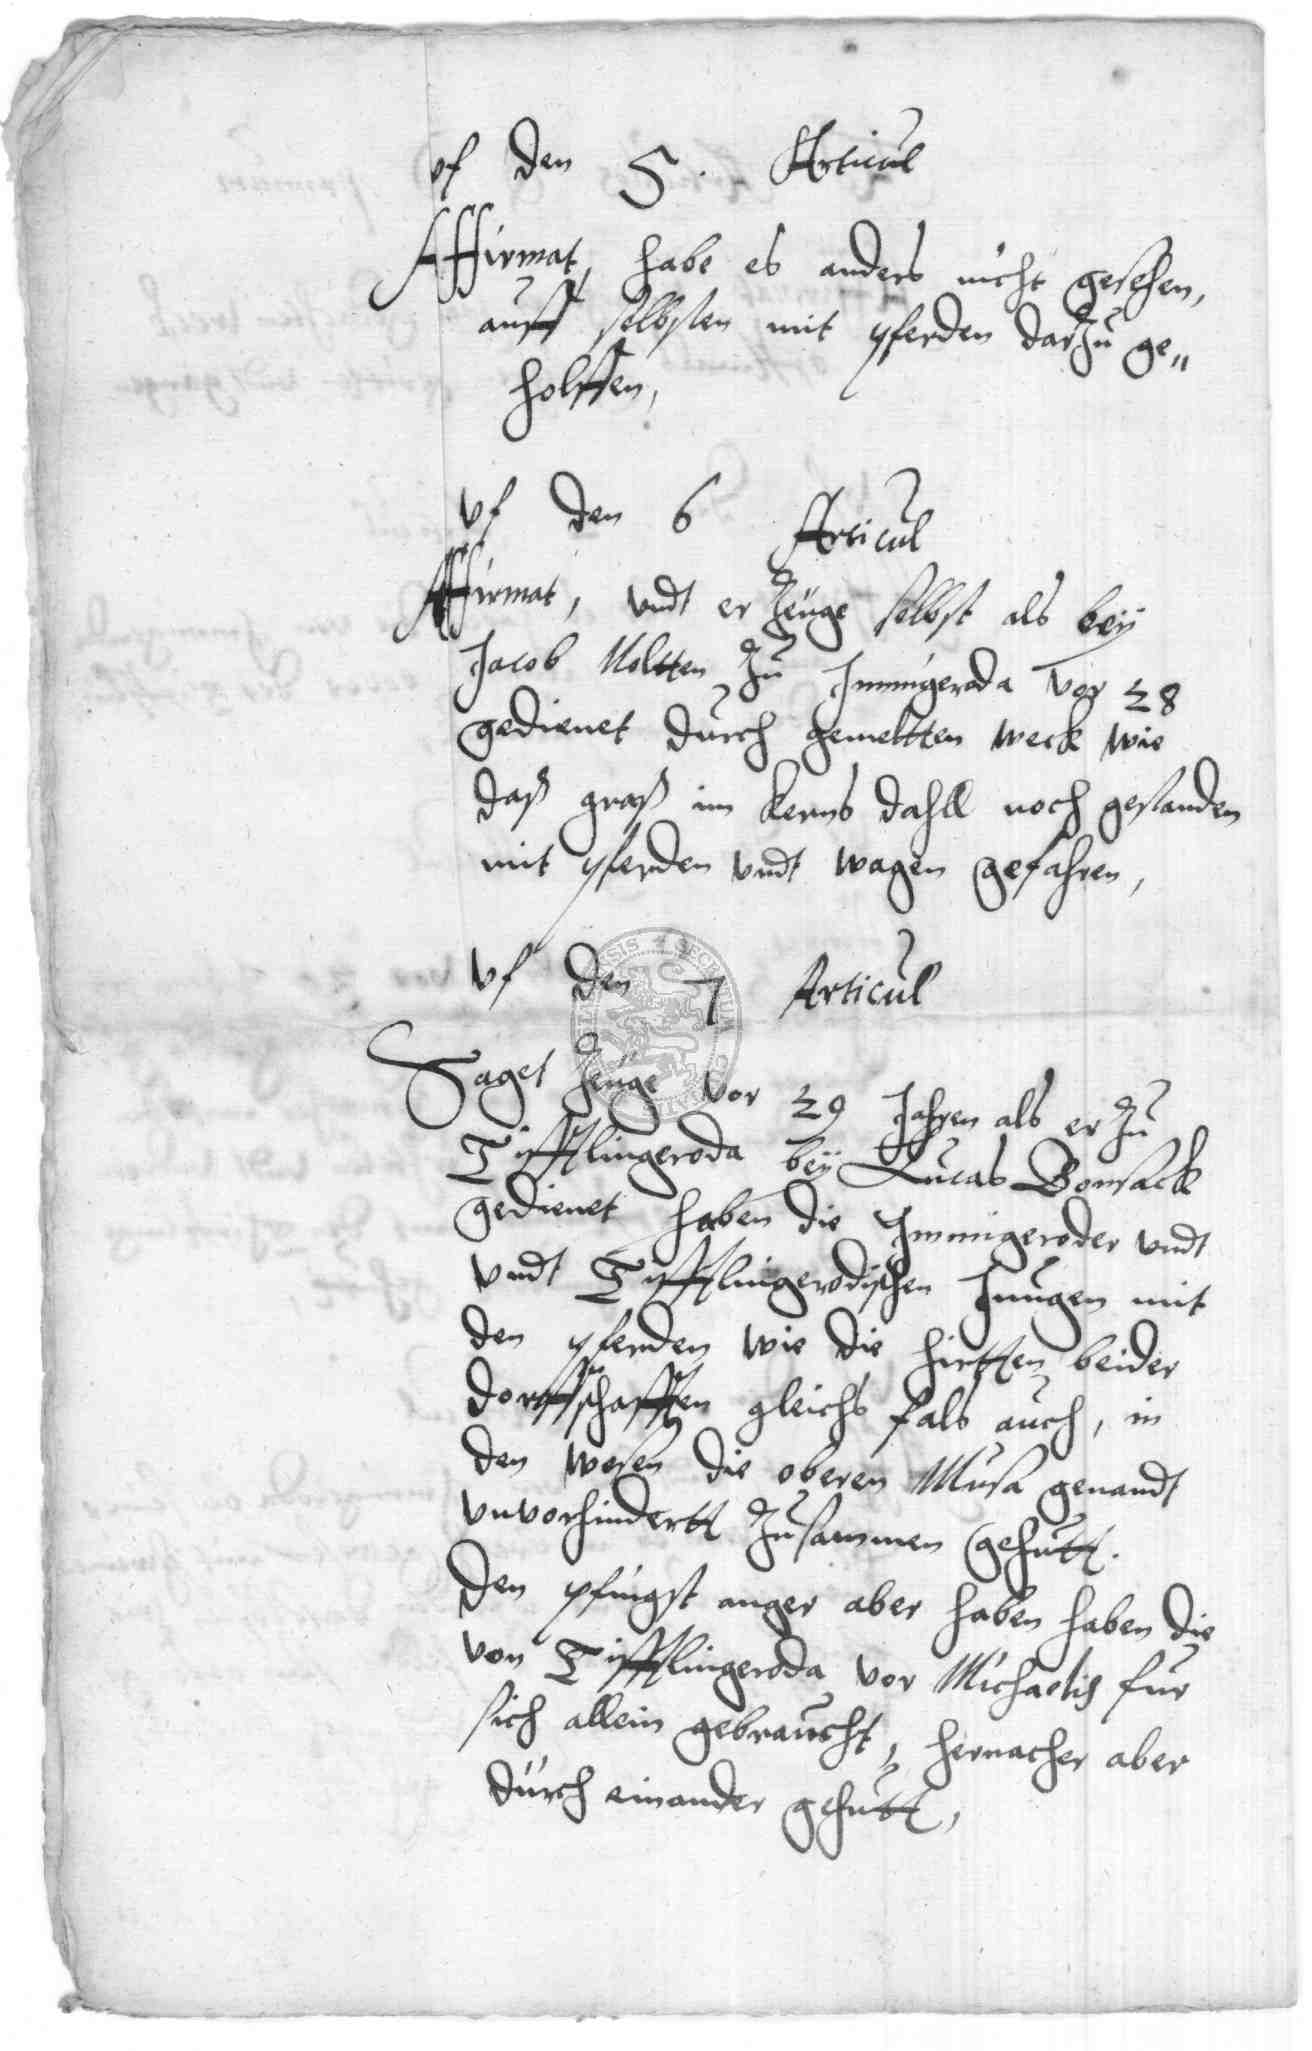 vf den 5. Articul
Affirmat, habe es anders nicht gesehen,
auff selbsten mit pferden darzu ge„
holffen,
vf den 6 Articul
Affirmat, vndt er Zeuge selbst als beÿ
Jacob Noltten zu Immigeroda vor 28
gedienet durch gemeltten weck wie
daß graß im kerns dahll noch gestanden
mit pferden vndt wagen gefahren,
vf den 7 Articul
Saget Zeuge vor 29 Jahren als er zu
Tifftlingeroda beÿ Lucas Bonsack
gedienet haben die Immigeroder vndt
vndt Tifftlingerodischen Jungen mit
den pferden wie die hirtten beider
dorffschafften gleichs fals auch, in
den wesen die oberen Musa genandt
vnvorhindertt zusammen gehutt.
den pfingst anger aber haben haben die
von Tifftlingeroda vor Michaelis fur
sich allein gebraucht, hernacher aber
durch einander gehutt,